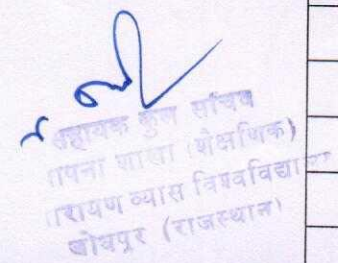 सहायक कुल सचिव
ापना शाखा (शैक्षणिक)
ारायण व्यास विश्वविद्या
जोधपुर (राजस्थान)